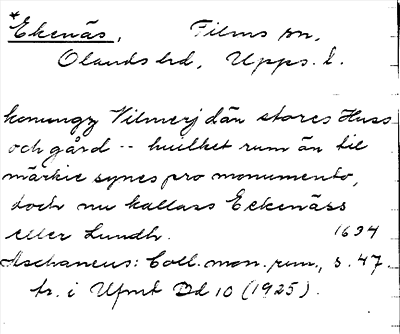 *Ekenäs, Films sn,
Olands hd, Upps. l.
konungz Vilmerj dän stores Huss
och gård -- huilket rum än til
märkie synes pro monumento,
doch nu kallass Eckenäss
eller Lundh. 1694
Aschaneus: Coll. mon. run., s. 47.
tr. i Upmt Bd 10 (1925).